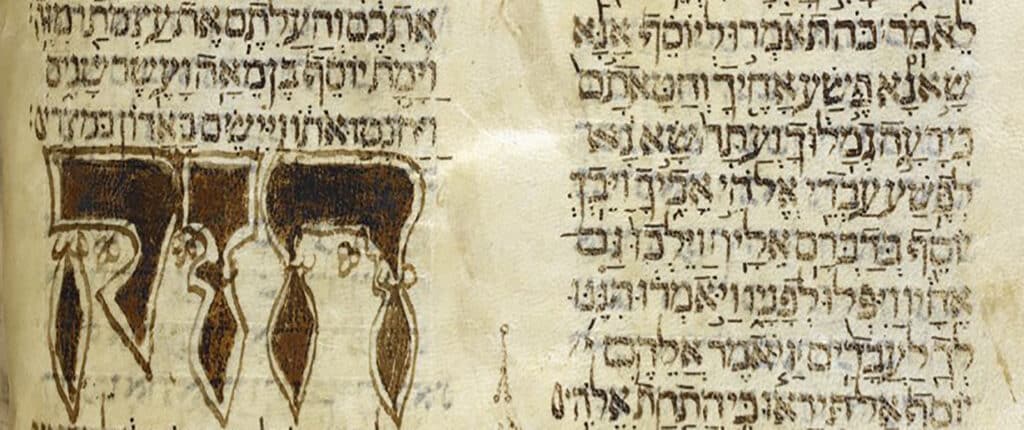 לאמר כה תאמרו ליוסף אנא
שא נא פשע אחיך וחטאתם
כי רעה גמלוך ועתה שא נא
לפשע עבדי אלהי אביך ויבך
יוסף בדברם אליו וילכו גם
אחיו ויפלו לפניו ויאמרו הננו
לך לעבדים ויאמר אלהם
יוסף אל תיראו כי התחת אלהים
אתכם והעלתם את עצמתי מזה
וימת יוסף בן מאה ועשר שנים
ויחנטו אתו ויישם בארון במצרים
חזק